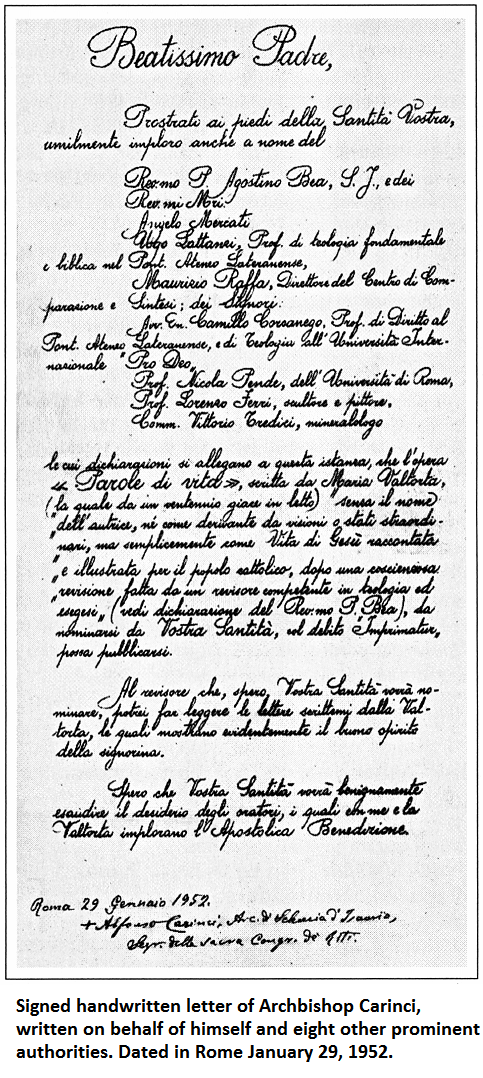 Beatissimo Padre,
Prostrati ai piedi della Santità Vostra,
umilmente imploro anche a nome del
Rev.mo P. Agostino Bea, S. J., e dei
Rev.mi Mri:
Angelo Mercati
Ugo Lattanzi, Prof. di teologia fondamentale
e biblica nel Pont. Ateneo Lateranense,
Maurizio Raffa, Direttore del Centro di Com-
parazione e Sintesi; dei Signori:
Avv. Cn. Camillo Corsanego, Prof. di Diritto al
Pont. Ateneo Lateranense, e di Teologia all'Università Inter-
nazionale "Pro Deo"
Prof. Nicola Pende, dell'Università di Roma,
Prof. Lorenzo Ferri, scultore e pittore,
Comm. Vittorio Tredici, mineralologo
le cui dichiarazioni si allegano a questa istanza, che l'opera
« Parole di vita », scritta da Maria Valtorta,
(la quale da un ventennio giace in letto) "senza il nome
"dell'autrice, nè come derivante da visioni o stati straordi-
"nari, ma semplicemente come Vita di Gesù raccontata
"e illustrata per il popolo cattolico, dopo una coscienziosa
"revisione fatta da un revisore competente in teologia ed
esegesi" (vedi dichiarazione del Rev.mo P. Bea), da
nominarsi da Vostra Santità, col debito "Imprimatur"
possa pubblicarsi.
Al revisore che, spero, Vostra Santità vorrà no-
minare, potrei far leggere le lettere scrittemi dalla Val-
torta, le quali mostrano evidentemente il buono spirito
della signorina.
Spero che Vostra Santità vorrà benignamente
esaudire il desiderio degli oratori, i quali con me e la
Valtorta implorano l'Apostolica Benedizione.
Roma 29 Gennaio 1952.
+ Alfonso Carinci, Arc. di Seleucia d'Isauria,
Segr. della Sacra Congr. de' Riti.
Signed handwritten letter of Archbishop Carinci,
written on behalf of himself and eight other prominent
authorities. Dated in Rome January 29, 1952.